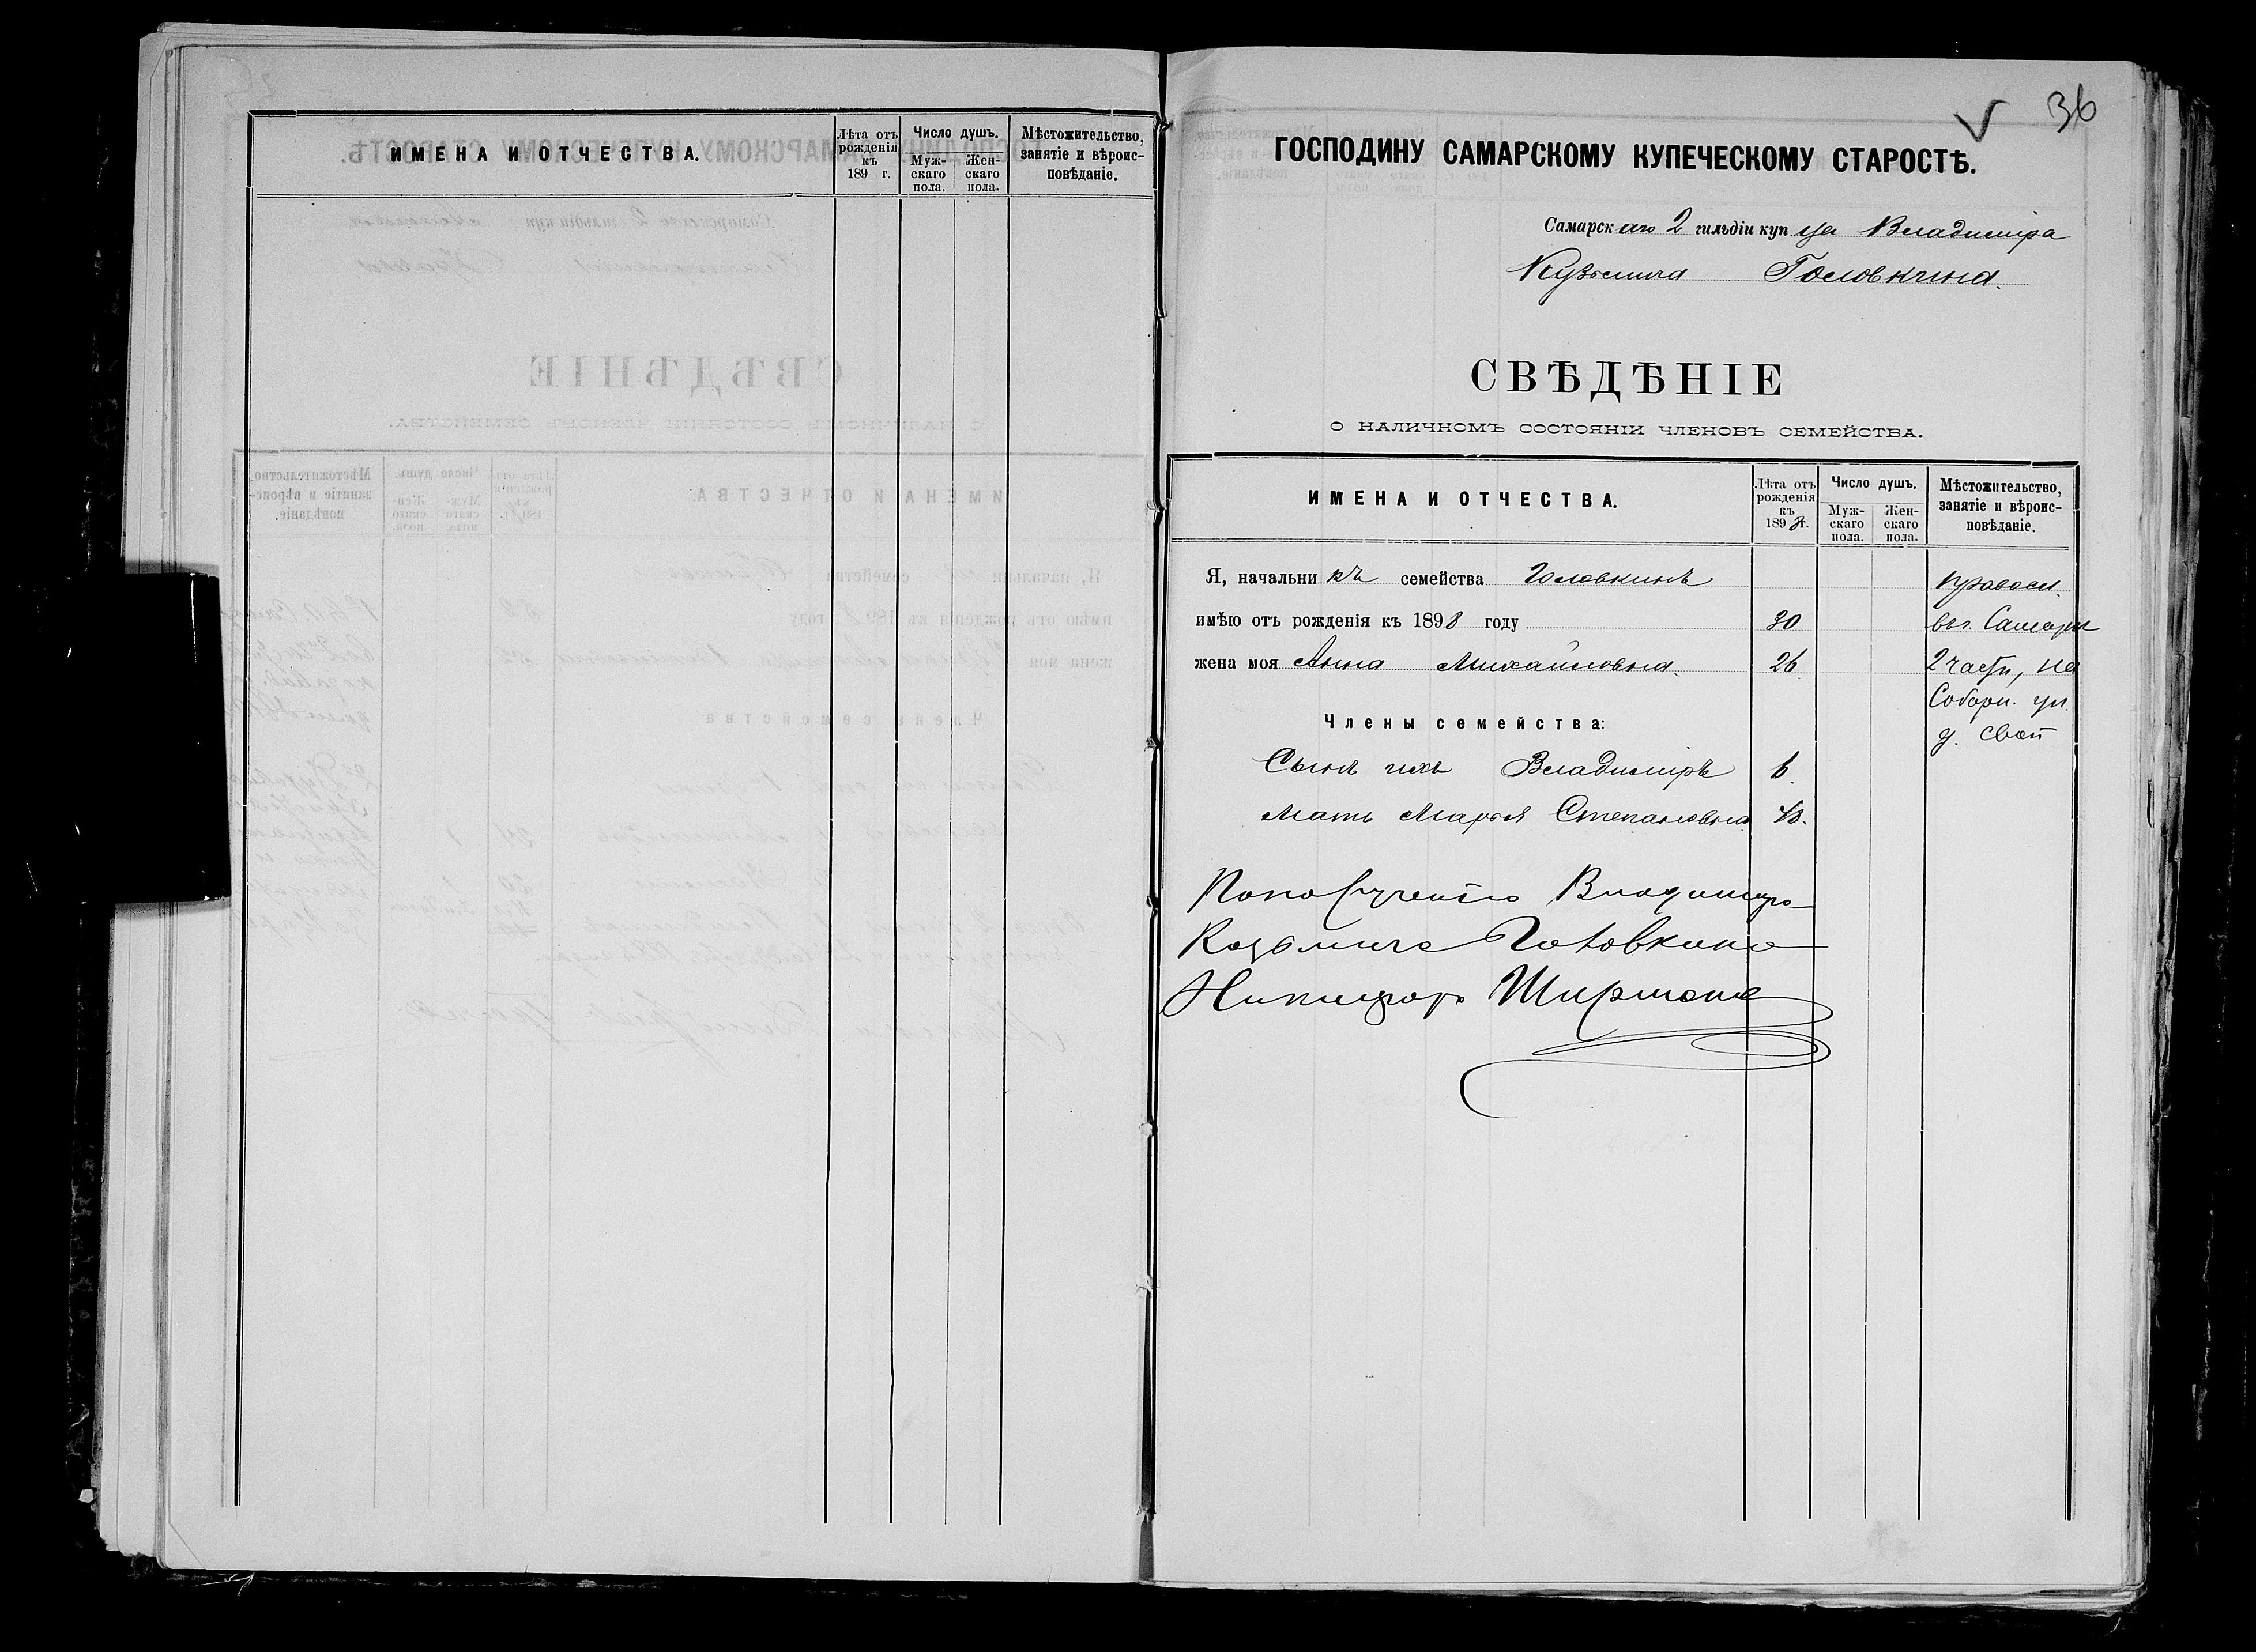 ИМЕНА И ОТЧЕСТВА.
Лѣта отъ рожденія къ 189 г.
Число душъ.
Мужскаго пола.
Женскаго пола.
Мѣстожительство, занятіе и вѣроисповѣданіе.
36
ГОСПОДИНУ САМАРСКОМУ КУПЕЧЕСКОМУ СТАРОСТѢ.
Самарскаго 2 гильдіи купца Владиміра
Кузьмича Головкина.
СВѢДѢНІЕ
О НАЛИЧНОМЪ СОСТОЯНІИ ЧЛЕНОВЪ СЕМЕЙСТВА.
ИМЕНА И ОТЧЕСТВА.
Лѣта отъ
рожденія
къ
189 г.
Число душъ.
Муж-
скаго
пола.
Жен-
скаго
пола.
Мѣстожительство,
занятіе и вѣроис-
повѣданіе.
Я, начальникъ семейства Головкинъ правосл.
имѣю отъ рожденія къ 1898 году 30 в г. Самары
жена моя Анна Михайловна. 26 2 части, на
Соборн. ул.
Члены семейства: д. свой
Сынъ ихъ Владиміръ 6.
Мать Марья Степановна
По порученію Владимира
Козьмича Головкина
Никифоръ